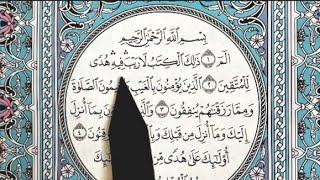 بِسْمِ اللَّهِ الرَّحْمَٰنِ الرَّحِيمِ
الٓمٓ ١ ذَٰلِكَ الْكِتَٰبُ لَا رَيْبَ ۛ فِيهِ ۛ هُدًى
لِّلْمُتَّقِينَ ٢ الَّذِينَ يُؤْمِنُونَ بِالْغَيْبِ الصَّلَوٰةَ
وَمِمَّا رَزَقْنَٰهُمْ يُنفِقُونَ ٣ بِمَا أُنزِلَ
إِلَيْكَ وَمَا أُنزِلَ مِن قَبْلِكَ ٤
أُو۟لَٰٓئِكَ عَلَىٰ هُدًى مِّن